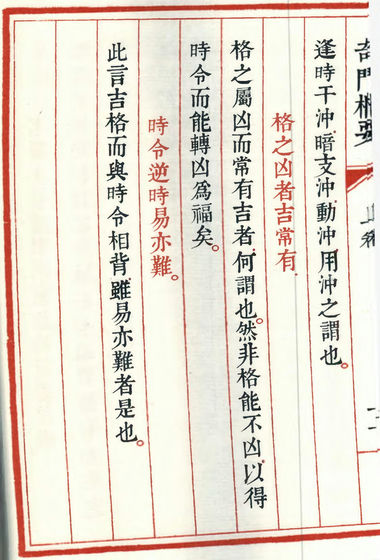 奇門樞要
上卷
逢時干沖、暗支沖、動沖、用沖之謂也。
格之凶者吉常有、
格之屬凶而常有吉者、何謂也。然非格能不凶、以得
時令而能轉凶為福矣。
時令逆時易亦難。
此言吉格而與時令相背、雖易亦難者是也。